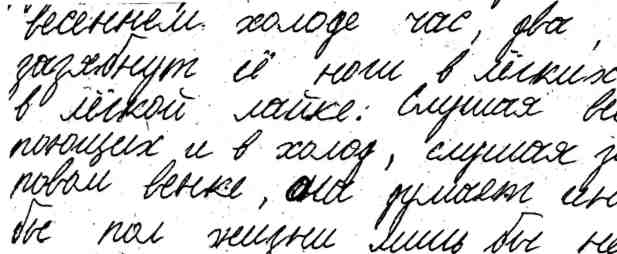 весеннем холоде час, два,
зазябнут её ноги в лёгких
в лёгкой лайке. Слушая ве
поющих и в холод, слушая з
повом венке, она думает ин
бы пол жизни лишь бы не